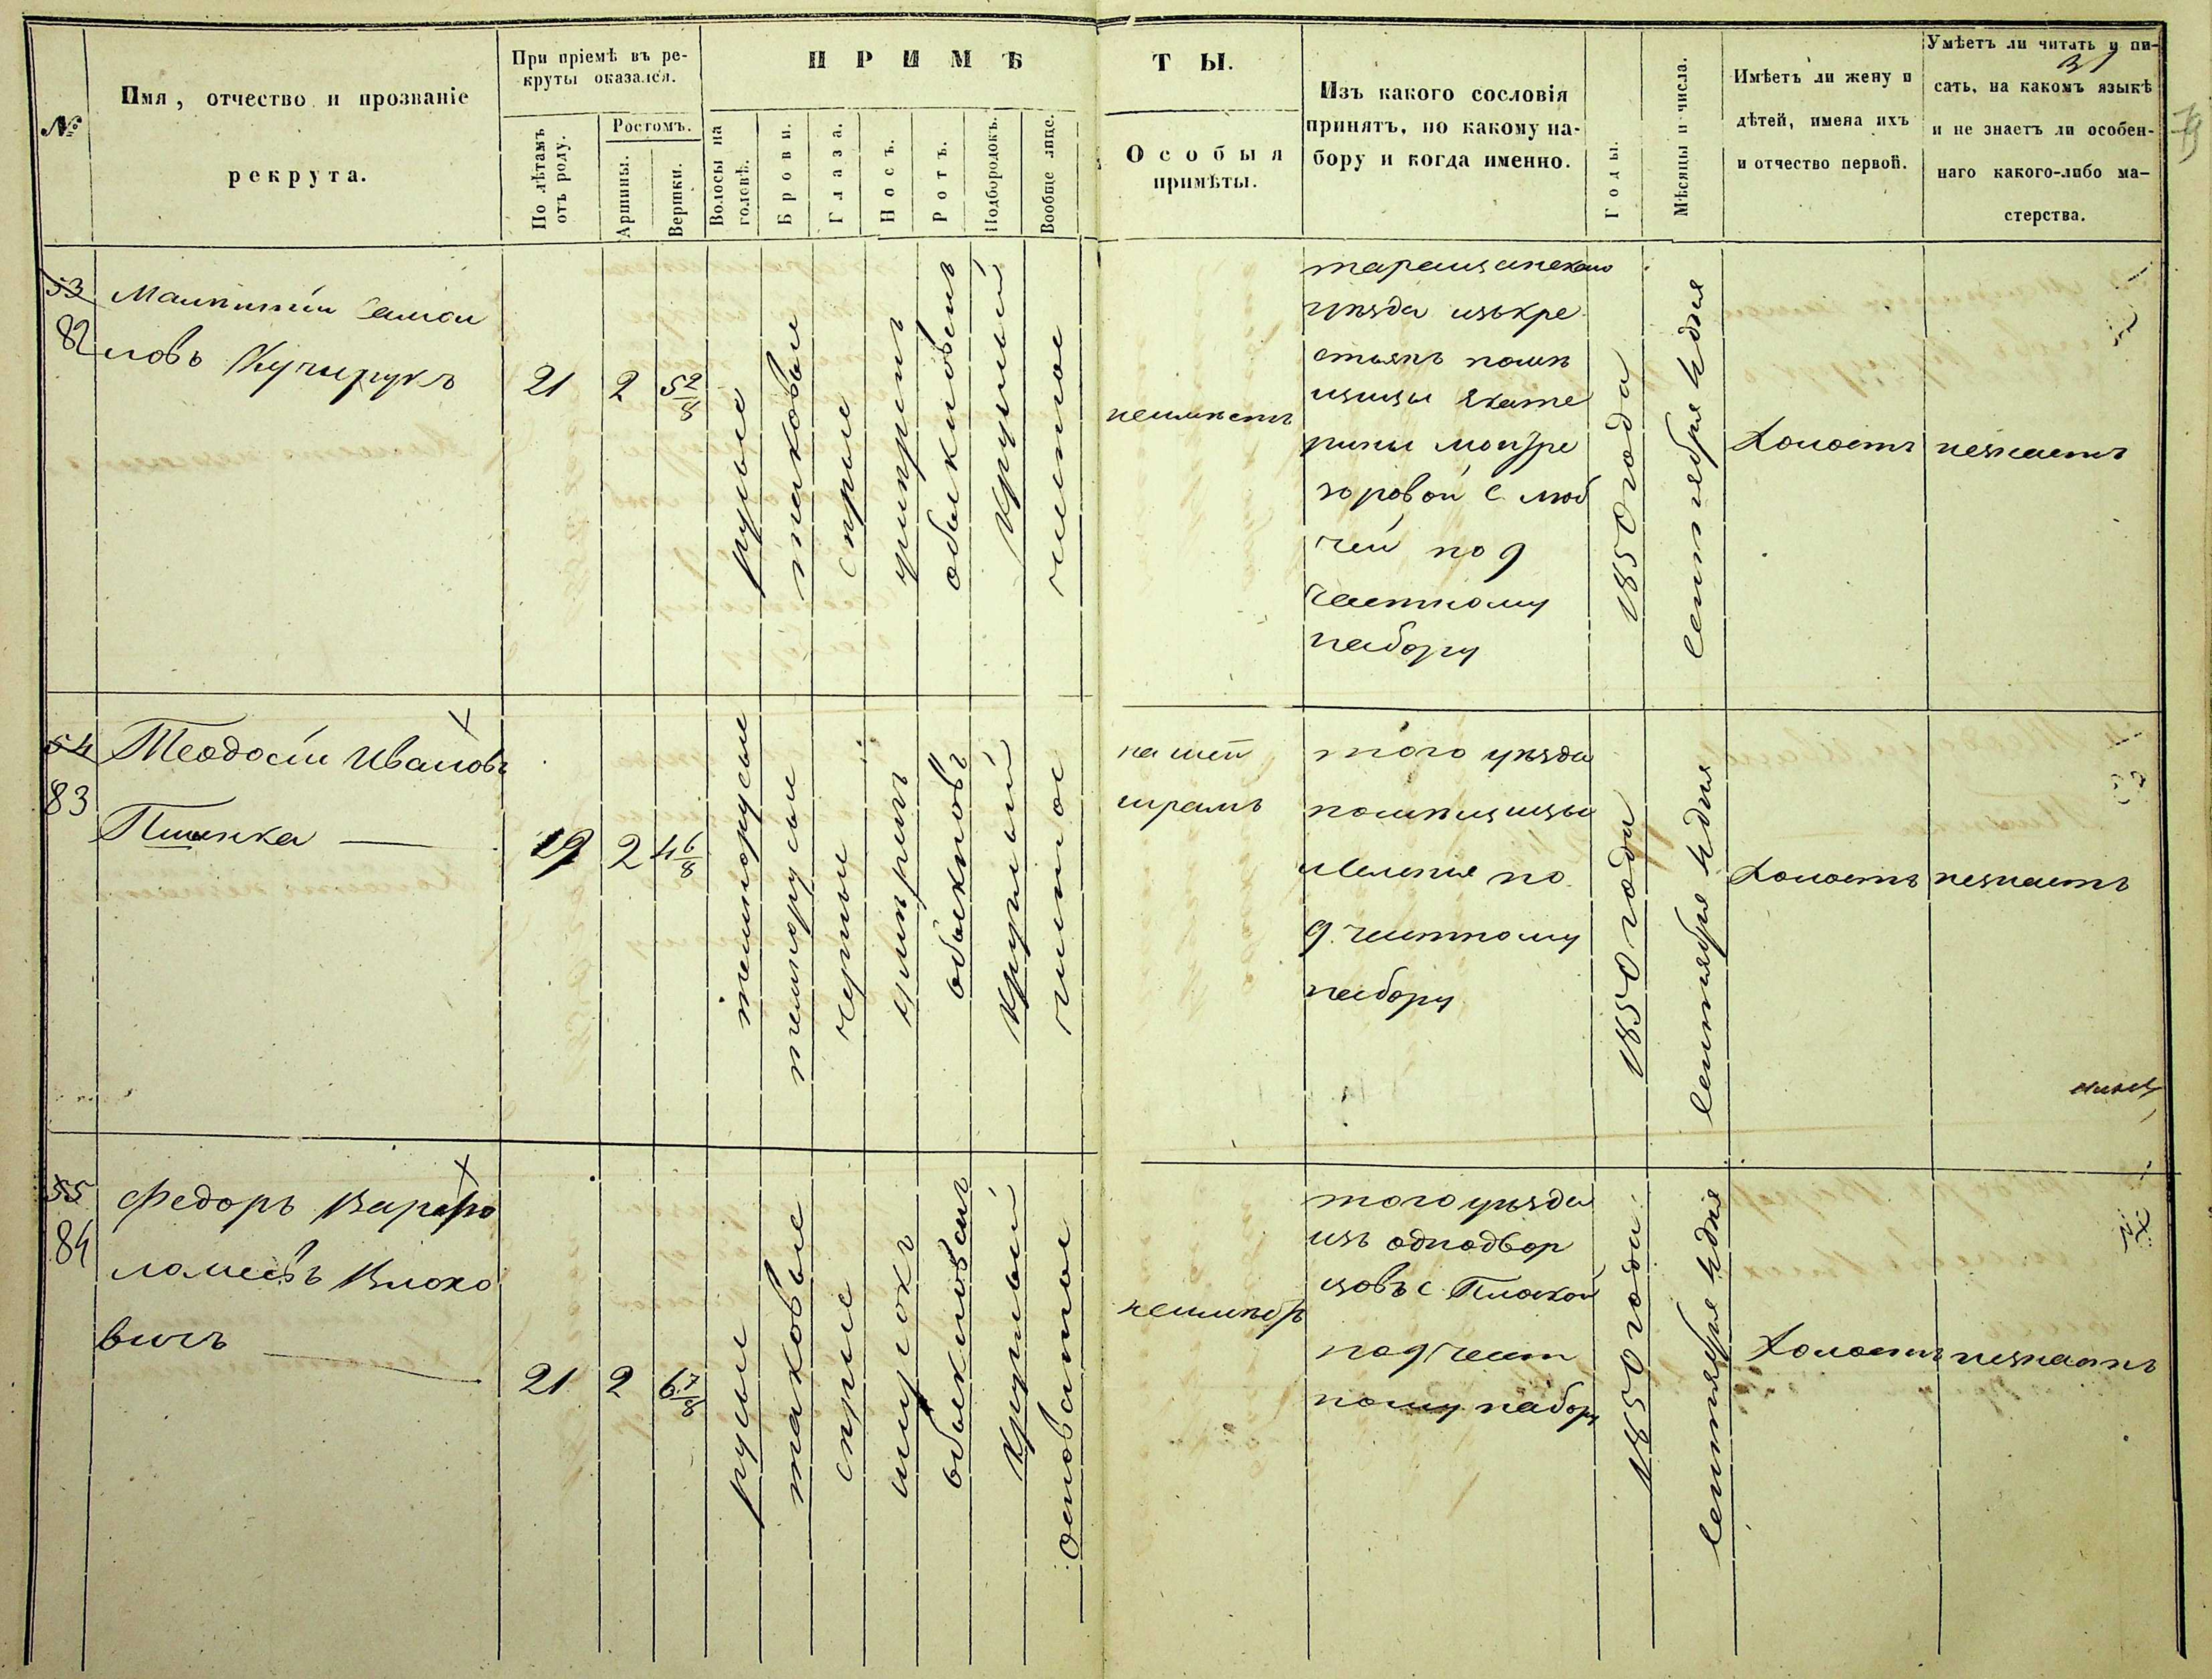 №
Имя, отчество и прозваніе
рекрута.
При пріемѣ въ ре-
круты оказался.
По лѣтамъ
отъ роду.
Ростомъ.
Аршины.
Вершки.
ПРИМѢ
ТЫ.
Волосы на
головѣ.
Брови.
Глаза.
Носъ.
Ротъ.
Подбородокъ.
Вообще лице.
Особыя
примѣты.
Изъ какого сословія
принятъ, по какому на-
бору и когда именно.
Годы.
Мѣсяцы и числа.
Имѣетъ ли жену и
дѣтей, имена ихъ
и отчество первой.
Умѣетъ ли читать и пи-
31
сать, на какомъ языкѣ
и не знаетъ ли особен-
наго какого-либо ма-
стерства.
53
82
Самой
ловъ Кучерукъ
21
2
5 2/8
русые
таковые
сѣрые
умѣрен
обыкновен
круглый
чистое
неимѣетъ
таращанскаго
уѣзда изъ кре
стьянъ помѣ
щицы Екате
рины
с. Люб
чей по 9
частному
набору
1850 года
сентября 4 дня
Холостъ
незнаетъ
54
83
Теодосій Ивановъ
Пшинка
19
2
4 6/8
темнорусые
темнорусы
черные
умѣрен
обыкнов
круглый
чистое
на шеи
шрамъ
того уѣзда
помѣщицы
по
9. частному
набору
1850 года
сентября 4 дня
Холостъ
незнаетъ
55
84
Федоръ Варфо
ломеевъ Влохо
вичъ
21
2
6 7/8
русы
таковые
сѣрые
широкъ
обыкновен
круглый
осповатое
неимѣетъ
того уѣзда
изъ однодвор
цовъ с. Плоской
по 9 част
ному набору
1850 года
сентября 4 дня
Холостъ
незнаетъ